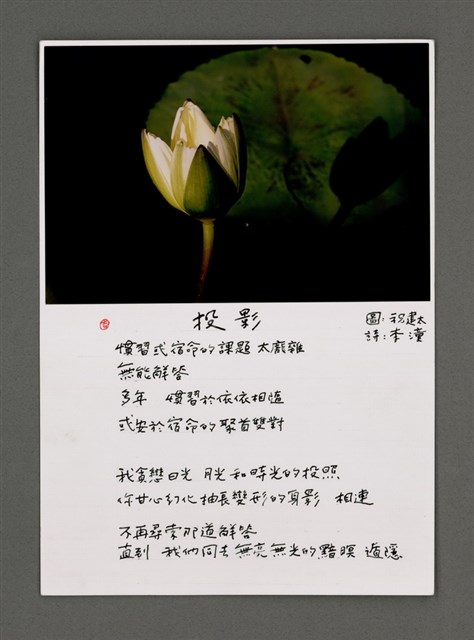 投影
圖:祝建太
詩:李潼
慣習或宿命的課題 太龐雜
無能解答
多年 慣習於依依相隨
或安於宿命的聚首雙對
我貪戀日光 月光和時光的投照
你甘心幻化抽長變形的身影 相連
不再尋索那道解答
直到 我們同去無亮無光的黯暝 遁隱